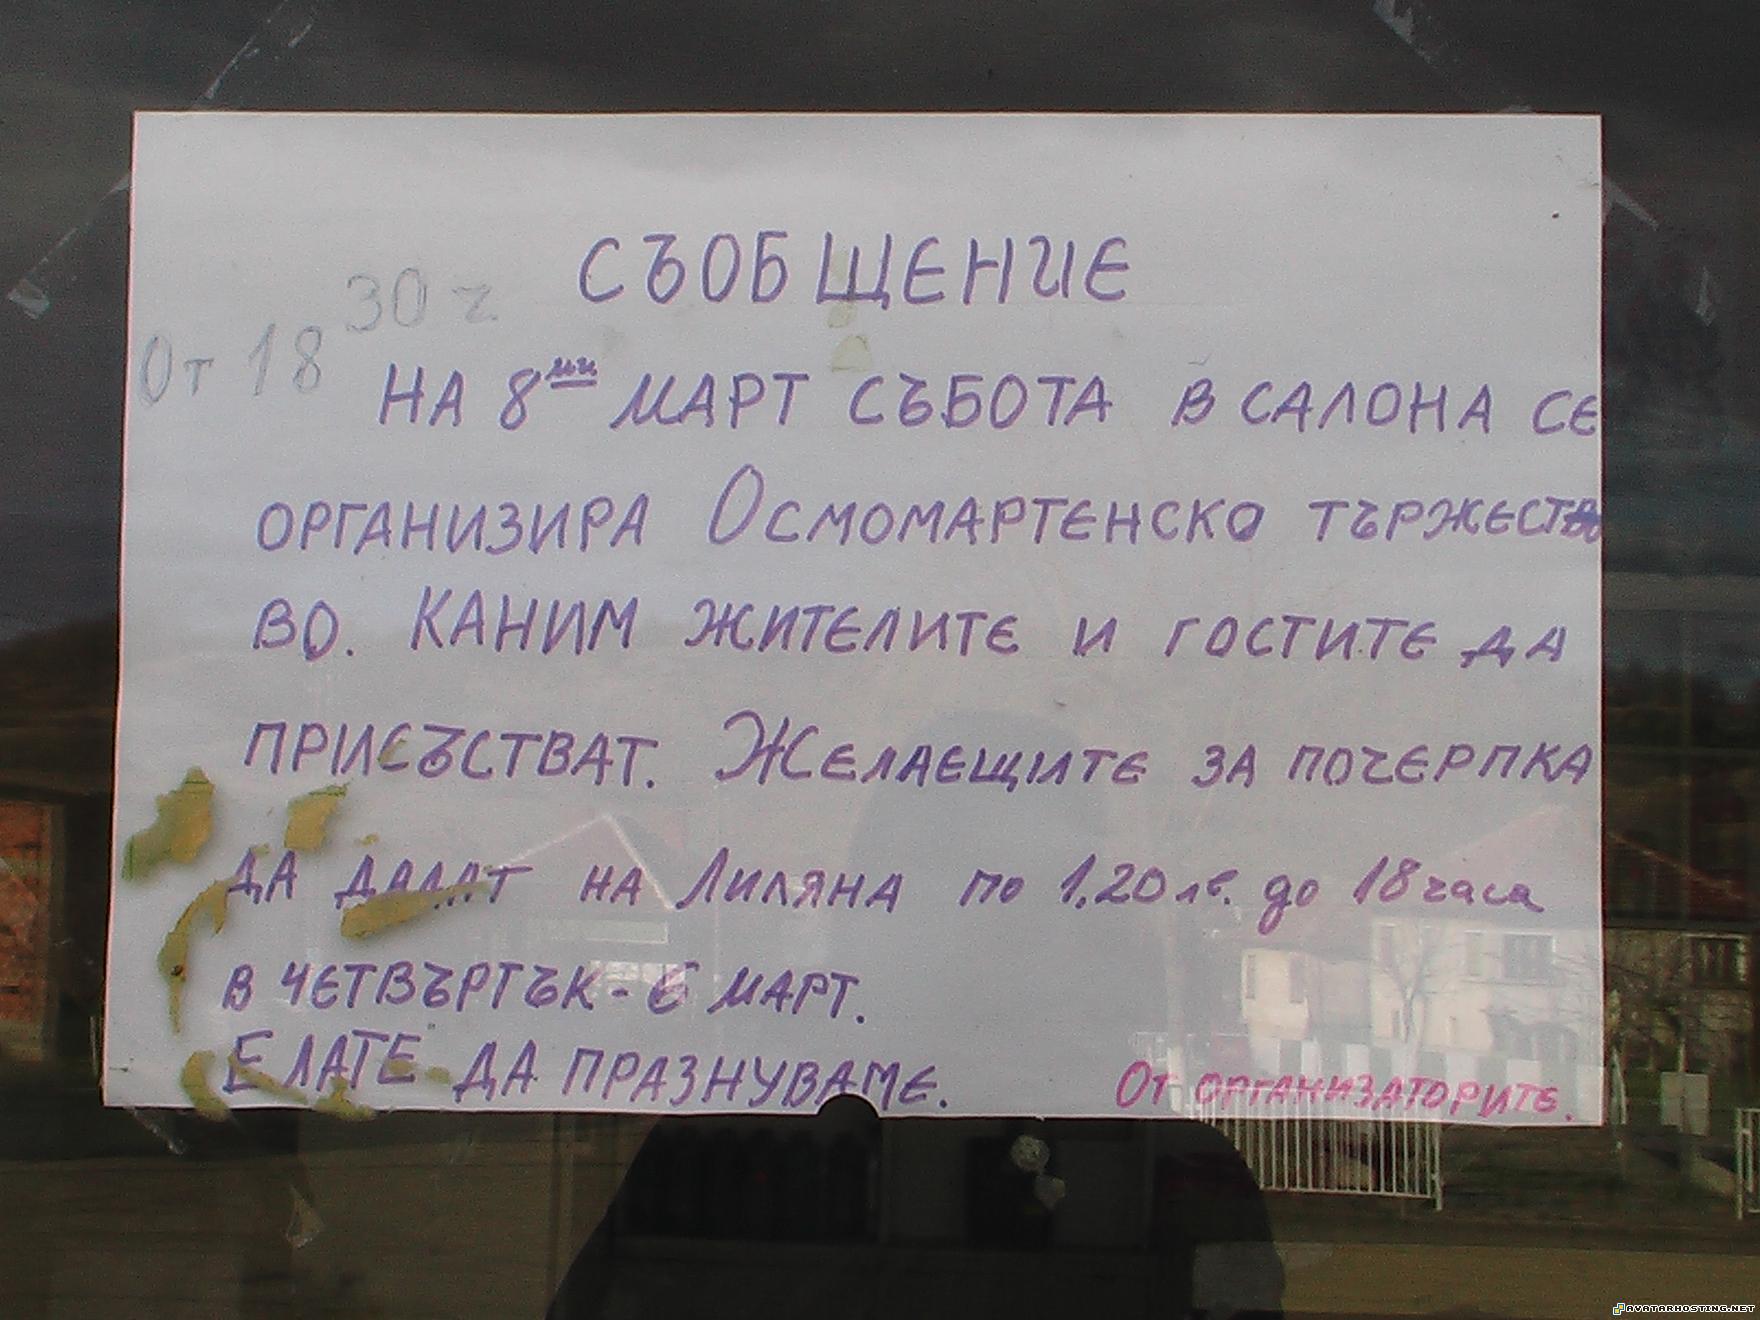 СЪОБЩЕНИЕ
От 18 30 ч.
НА 8ми МАРТ СЪБОТА В САЛОНА СЕ
ОРГАНИЗИРА ОСМОМАРТЕНСКО ТЪРЖЕСТ
ВО. КАНИМ ЖИТЕЛИТЕ И ГОСТИТЕ ДА
ПРИСЪСТВАТ. ЖЕЛАЕЩИТЕ ЗА ПОЧЕРПКА
ДА ДАДАТ НА ЛИЛЯНА по 1.20 лв. до 18 часа
В ЧЕТВЪРТЪК - 6 МАРТ.
ЕЛАТЕ ДА ПРАЗНУВАМЕ. ОТ ОРГАНИЗАТОРИТЕ.
AVATARHOSTING.NET